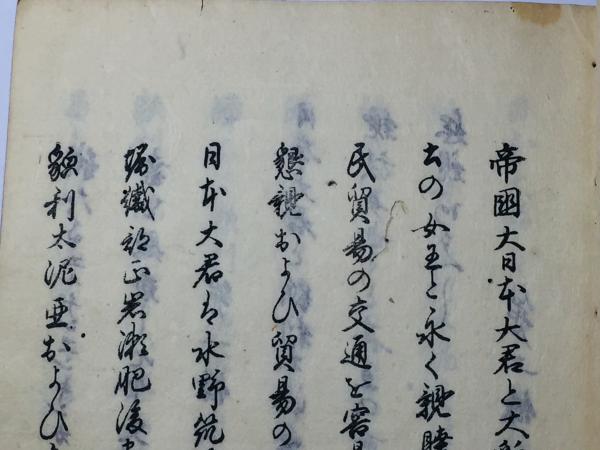 帝國大日本大君と大
土の女王と永く親睦
民貿易の交通を容易
懇親およひ貿易の
日本大君は水野筑
堀織部正岩瀬肥後
貌利太泥亜およひ